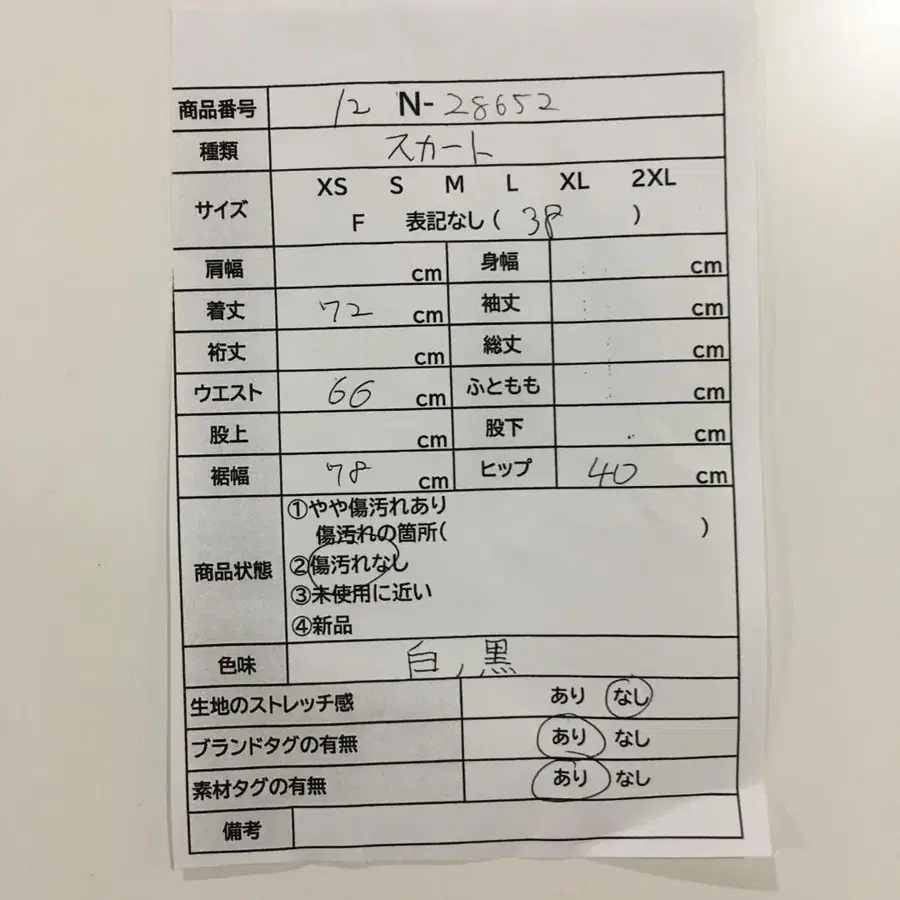 商品番号 12 N-28652
種類 スカート
サイズ XS S M L XL 2XL
F 表記なし ( 38 )
肩幅 cm 身幅 cm
着丈 72 cm 袖丈 cm
裄丈 cm 総丈 cm
ウエスト 66 cm ふともも cm
股上 cm 股下 cm
裾幅 78 cm ヒップ 40 cm
商品状態 ①やや傷汚れあり
傷汚れの箇所( )
②傷汚れなし
③未使用に近い
④新品
色味 白,黒
生地のストレッチ感 あり なし
ブランドタグの有無 あり なし
素材タグの有無 あり なし
備考